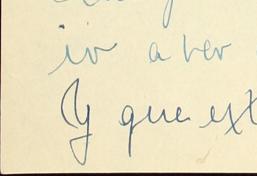 ir a ver
Y que ext